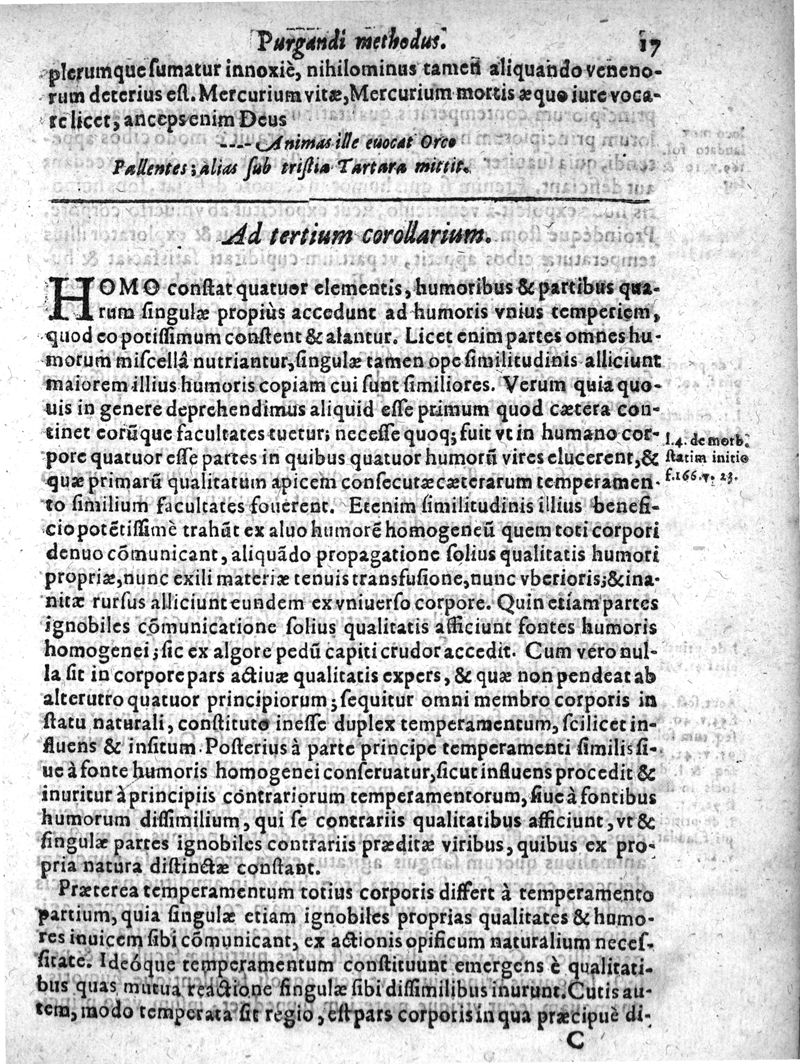 Purgandi methodus. 17
plerumque sumatur innoxiè, nihilominus tamen aliquando veneno-
rum deterius est. Mercurium vitæ, Mercurium mortis æquo iure voca-
re licet; anceps enim Deus
---- Animas ille euocat Orco
Pallentes; alias sub tristia Tartara mittit.
Ad tertium corollarium.
HOMO constat quatuor elementis, humoribus & partibus qua-
rum singulæ propiùs accedunt ad humoris vnius temperiem,
quod eo potissimum constent & alantur. Licet enim partes omnes hu-
morum miscellâ nutriantur, singulæ tamen ope similitudinis alliciunt
maiorem illius humoris copiam cui sunt similiores. Verum quia quo-
uis in genere deprehendimus aliquid esse primum quod cætera con-
tinet eorūque facultates tuetur; necesse quoq; fuit vt in humano cor-
pore quatuor esse partes in quibus quatuor humorū vires elucerent, &
quæ primarū qualitatum apicem consecutæ cæterarum temperamen-
to similium facultates fouerent. Etenim similitudinis illius benefi-
cio potētissimè trahāt ex aluo humorē homogeneū quem toti corpori
denuo cōmunicant, aliquādo propagatione solius qualitatis humori
propriæ, nunc exili materiæ tenuis transfusione, nunc vberioris; & ina-
nitæ rursus alliciunt eundem ex vniuerso corpore. Quin etiam partes
ignobiles cōmunicatione solius qualitatis afficiunt fontes humoris
homogenei; sic ex algore pedū capiti crudor accedit. Cum vero nul-
la sit in corpore pars actiuæ qualitatis expers, & quæ non pendeat ab
alterutro quatuor principiorum; sequitur omni membro corporis in
statu naturali, constituto inesse duplex temperamentum, scilicet in-
fluens & insitum. Posterius à parte principe temperamenti similis si-
ue à fonte humoris homogenei conseruatur, sicut influens procedit &
inuritur à principiis contrariorum temperamentorum, siue à fontibus
humorum dissimilium, qui se contrariis qualitatibus afficiunt, vt &
singulæ partes ignobiles contrariis præditæ viribus, quibus ex pro-
pria natura distinctæ constant.
Præterea temperamentum totius corporis differt à temperamento
partium, quia singulæ etiam ignobiles proprias qualitates & humo-
res inuicem sibi cōmunicant, ex actionis opificum naturalium neces-
sitate. Ideóque temperamentum constituunt emergens è qualitati-
bus quas mutua reactione singulæ sibi dissimilibus inurunt. Cutis au-
tem, modo temperata sit regio, est pars corporis in qua præcipuè di-
C
l. 4. de morb.
statim initio
f. 166. v. 23.